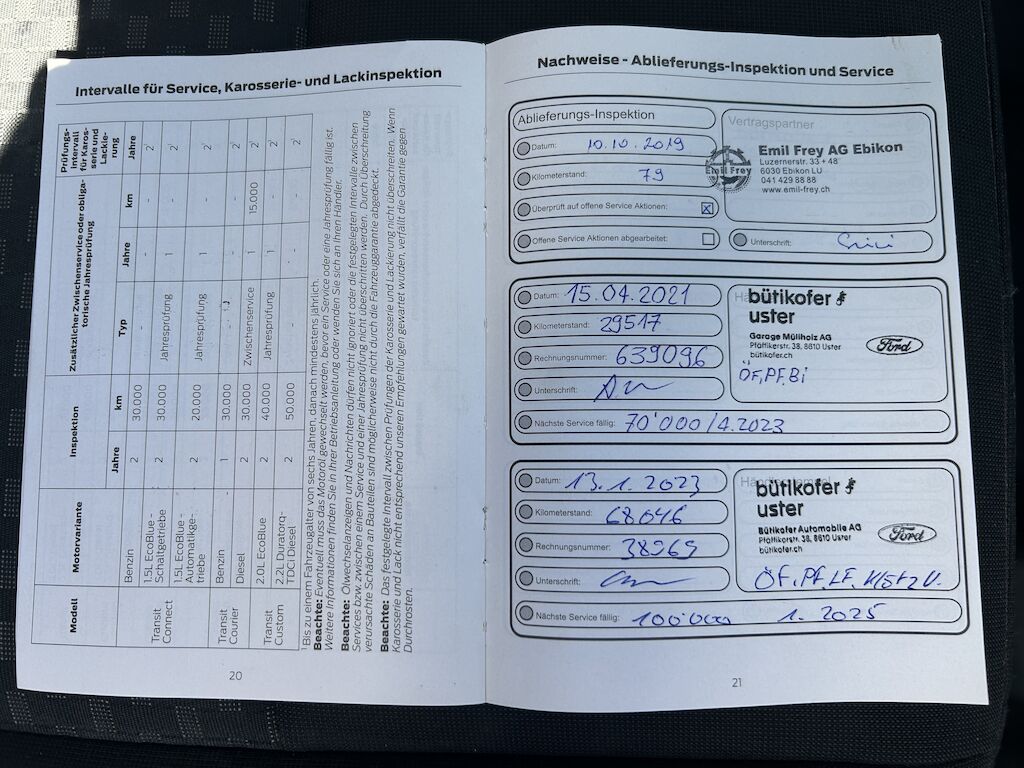 Intervalle für Service, Karosserie- und Lackinspektion
Modell
Motorvariante
Inspektion
Zusätzlicher Zwischenservice oder obligatorische Jahresprüfung
Prüfungs-Intervall für Karosserie und Lackierung
Jahre km Typ Jahre km Jahre
Transit Connect
Benzin 2 30.000 - - - 2¹
1.5L EcoBlue - Schaltgetriebe 2 30.000 Jahresprüfung 1 - 2¹
1.5L EcoBlue - Automatikgetriebe 2 20.000 Jahresprüfung 1 - 2¹
Transit Courier
Benzin 1 30.000 - - - 2¹
Diesel 2 30.000 Zwischenservice 1 15.000 2¹
Transit Custom
2.0L EcoBlue 2 40.000 Jahresprüfung 1 - 2¹
2.2L Duratorq-TDCi Diesel 2 50.000 - - - 2¹
¹ Bis zu einem Fahrzeugalter von sechs Jahren, danach mindestens jährlich.
Beachte: Eventuell muss das Motoröl gewechselt werden, bevor ein Service oder eine Jahresprüfung fällig ist.
Weitere Informationen finden Sie in Ihrer Betriebsanleitung oder wenden Sie sich an Ihren Händler.
Beachte: Ölwechselanzeigen und Nachrichten dürfen nicht ignoriert oder die festgelegten Intervalle zwischen
Services bzw. zwischen einem Service und einer Jahresprüfung nicht überschritten werden. Durch Überschreitung
verursachte Schäden an Bauteilen sind möglicherweise nicht durch die Fahrzeuggarantie abgedeckt.
Beachte: Das festgelegte Intervall zwischen Prüfungen der Karosserie und Lackierung nicht überschreiten. Wenn
Karosserie und Lack nicht entsprechend unseren Empfehlungen gewartet wurden, verfällt die Garantie gegen
Durchrosten.
20
Nachweise - Ablieferungs-Inspektion und Service
Ablieferungs-Inspektion
Datum: 10.10.2019
Kilometerstand: 79
Überprüft auf offene Service Aktionen:
Offene Service Aktionen abgearbeitet:
Vertragspartner
Emil Frey
Emil Frey AG Ebikon
Luzernerstr. 33 + 48
6030 Ebikon LU
041 429 88 88
www.emil-frey.ch
Unterschrift:
Datum: 15.04.2021
Kilometerstand: 29517
Rechnungsnummer: 639096
Unterschrift:
Nächste Service fällig: 70'000/4.2023
bütikofer
uster
Garage Müliholz AG
Pfäffikerstr. 38, 8610 Uster
bütikofer.ch
Ford
ÖF, PF, Bi
Datum: 13.1.2023
Kilometerstand: 68046
Rechnungsnummer: 38969
Unterschrift:
Nächste Service fällig: 100'000 1.2025
bütikofer
uster
Bütikofer Automobile AG
Pfäffikerstr. 38, 8610 Uster
bütikofer.ch
Ford
ÖF, PF, LF,
21